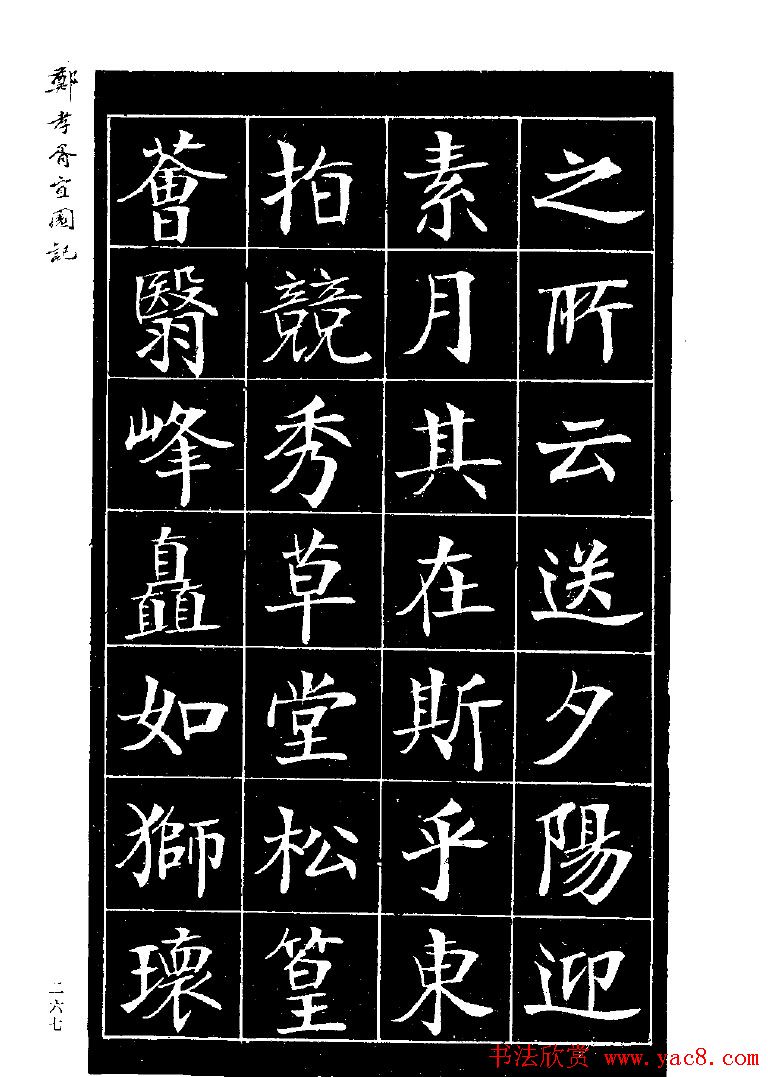 之所云送夕陽迎
素月其在斯乎東
拍競秀草堂松篁
薈翳峰矗如獅瓌
鄭孝胥宜園記
二六七
书法欣赏 www.yac8.com